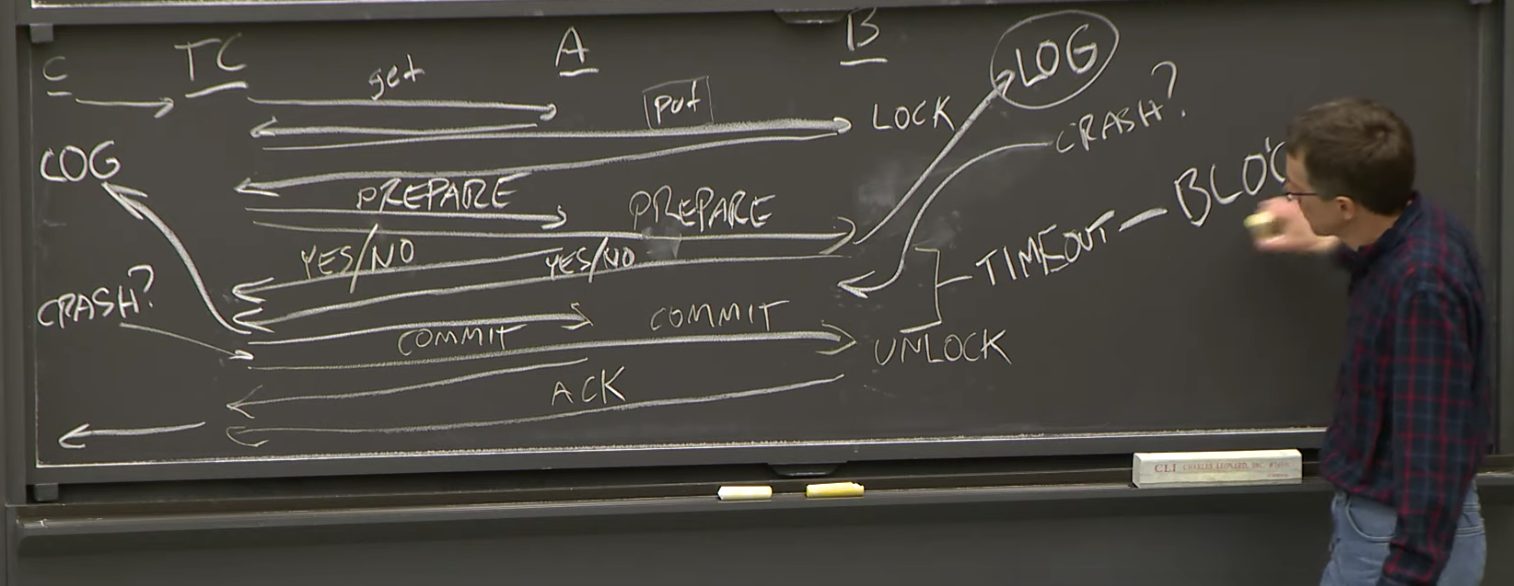 C TC A B LOG
get
put
LOCK
CRASH?
LOG
PREPARE PREPARE
YES/NO YES/NO
TIMEOUT — BLOC
CRASH?
COMMIT COMMIT
UNLOCK
ACK
CLI CHARLES LEONARD, INC.